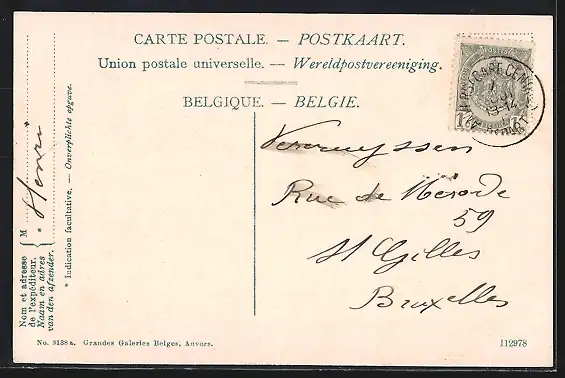 CARTE POSTALE. — POSTKAART.
Union postale universelle. — Wereldpostvereeniging.
BELGIQUE. — BELGIE.
Nom et adresse
de l'expéditeur.
Naam en adres
van den afzender.
M
* Henri
* Indication facultative. — Onverplichte opgave.
Vercruyssen
Rue de Mérode
59
St Gilles
Bruxelles
No. 3138 a. Grandes Galeries Belges, Anvers.
112978